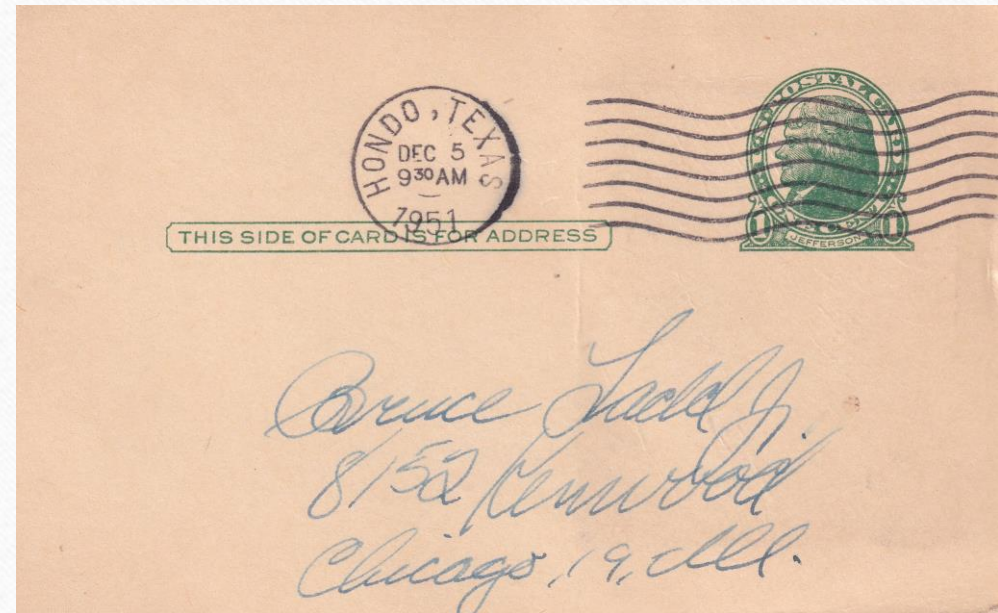 HONDO, TEXAS
DEC 5
9 30 AM
1951
U.S. POSTAL CARD
1 JEFFERSON
THIS SIDE OF CARD IS FOR ADDRESS
Bruce Ladd Jr.
8152 Kenwood
Chicago, 19, Ill.